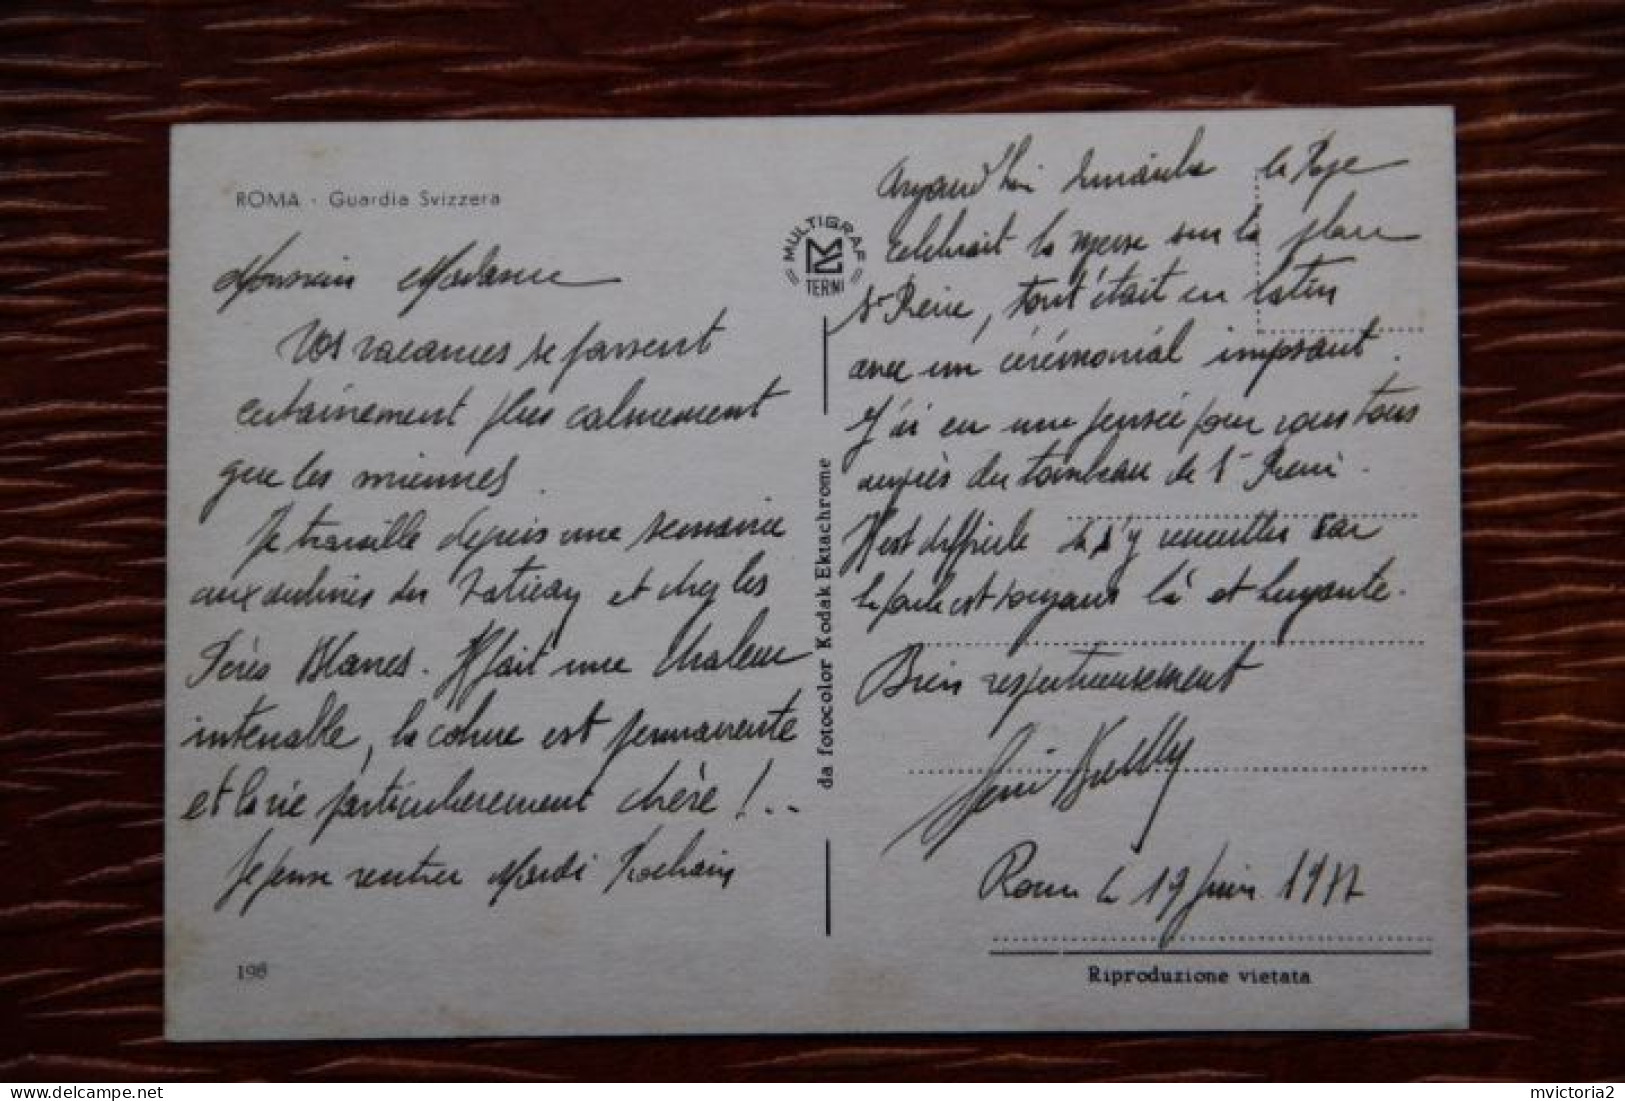 ROMA - Guardia Svizzera
Monsieur Madame
Vos vacances se passent
certainement plus calmement
que les miennes.
Je travaille depuis une semaine
aux archives du Vatican et chez les
Pères Blancs. Il fait une chaleur
intenable, la cohue est permanente
et la vie particulièrement chère !..
Je pense rentrer Mardi Prochain
198
MULTIGRAF
TERNI
da fotocolor Kodak Ektachrome
Aujourd'hui dimanche le Pape
célébrait la messe sur la place
St Pierre, tout était en latin
avec un cérémonial imposant.
J'ai eu une pensée pour vous tous
auprès du tombeau de St Pierre.
Il est difficile de s'y recueillir car
la foule est toujours là et bruyante.
Bien respectueusement
Rome le 19 Juin 1977
Riproduzione vietata
mvictoria2